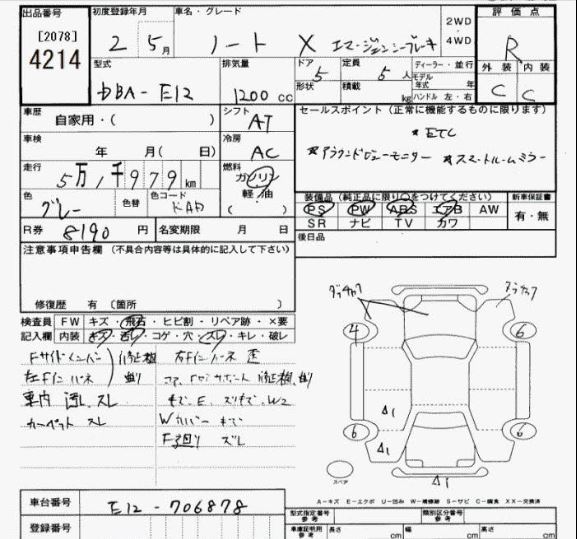 出品番号
[2078]
4214
初度登録年月
2 5月
車名・グレード
ノート X エマージェンシーブレーキ
2WD
4WD
評価点
R
外装 内装
C C
型式
DBA-E12
排気量
1200 cc
ドア 5
形状
定員 5人
積載 kg
ディーラー・並行
モデル年式 年式
ハンドル 左・右
車歴
自家用・( )
シフト
AT
セールスポイント(正常に機能するものに限ります)
★ETC
★アラウンドビューモニター ★スマートルームミラー
車検
年 月( 日)
冷房
AC
走行
5万1千979km
燃料
ガソリン
軽油
( )
色
グレー
色替
色コード
KAD
装備品(純正品に限り○をつけてください)
PS PW ABS エアB AW
SR ナビ TV カワ
新車保証書
有・無
R券
8190円
名変期限 月 日
後日品
注意事項申告欄(不具合内容等は具体的に記入して下さい)
修復歴 有(箇所 )
検査員記入欄
FW キズ・飛石・ヒビ割・リペア跡・×要
内装 キズ・汚れ・コゲ・穴・スレ・キレ・破レ
Fサイドメンバー 修正機
左Fインパネ 曲り
右Fインパネ 歪
車内 汚レ、スレ
キズ、E、スリキズ、W2
カーペット スレ
Wカバー キズ
F廻り ズレ
4
6
6
6
△1
△1
△1
スペア
A-キズ E-エクボ U-凹み W-補修跡 S-サビ C-腐食 XX-交換済
車台番号
E12-706878
登録番号
型式指定番号
参考
類別区分番号
参考
車庫証明用
参考
長さ cm
幅 cm
高さ cm